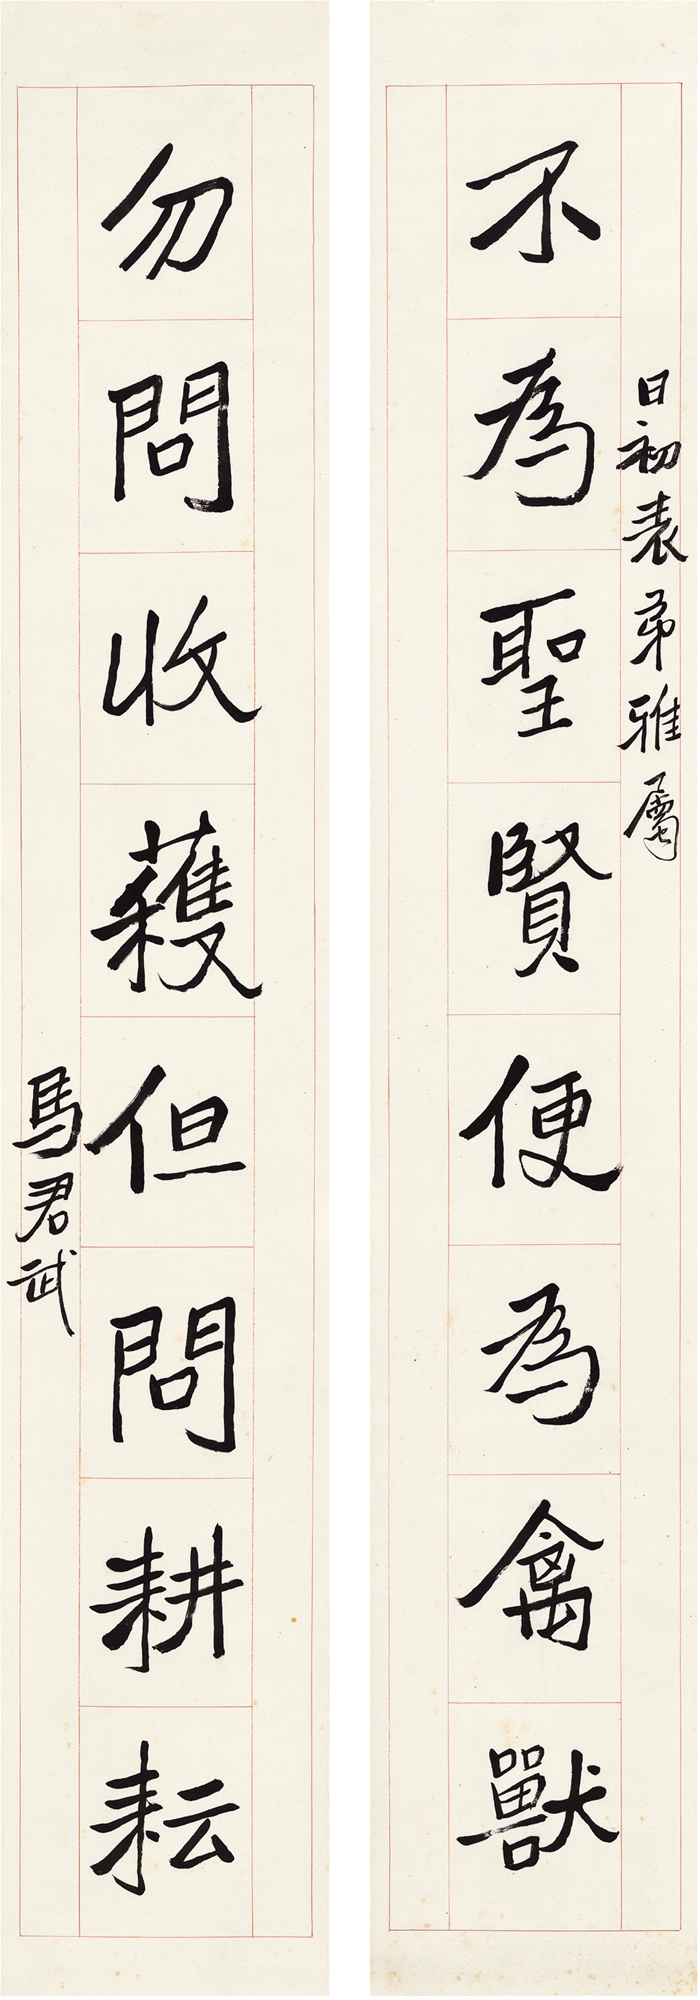 日初表弟雅屬
不為聖賢便為禽獸
勿問收穫但問耕耘
馬君武